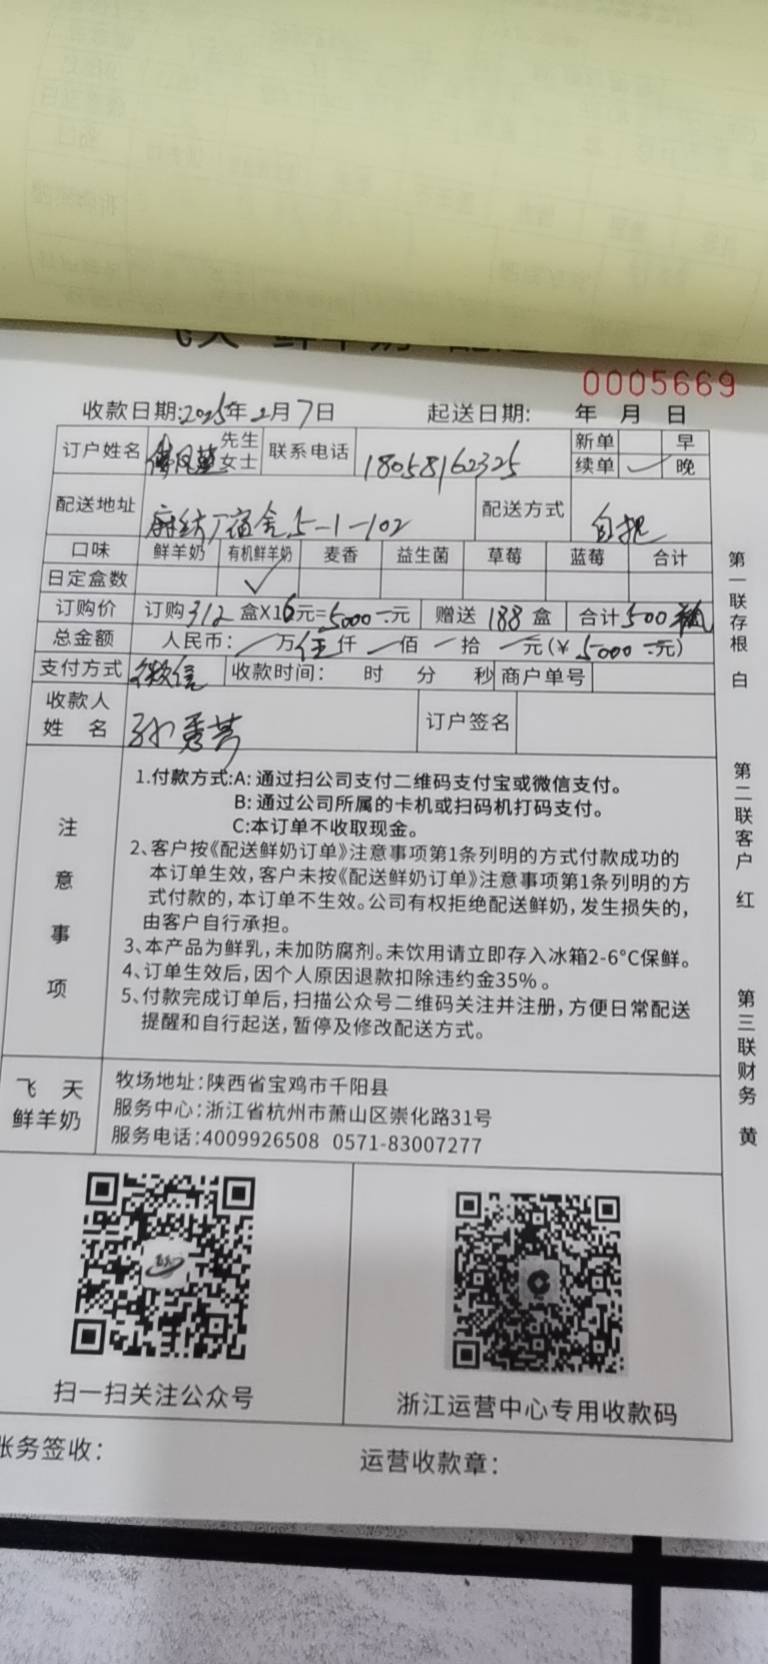 0005669
收款日期:2025年2月7日 起送日期: 年 月 日
订户姓名 傅凤 先生 女士 联系电话 18058162325 新单 早
续单 ✓ 晚
配送地址 麻纺厂宿舍5-1-102 配送方式 自提
口味 鲜羊奶 有机鲜羊奶 麦香 益生菌 草莓 蓝莓 合计
日定盒数 ✓
订购价 订购312盒X16元=5000一元 赠送188盒 合计500瓶
总金额 人民币: 一万伍仟一佰一拾一元(¥5000一元)
支付方式 微信 收款时间: 时 分 秒 商户单号
收款人姓名 孙秀芳 订户签名
注意事项
1.付款方式:A:通过扫公司支付二维码支付宝或微信支付。
B:通过公司所属的卡机或扫码机打码支付。
C:本订单不收取现金。
2、客户按《配送鲜奶订单》注意事项第1条列明的方式付款成功的
本订单生效,客户未按《配送鲜奶订单》注意事项第1条列明的方
式付款的,本订单不生效。公司有权拒绝配送鲜奶,发生损失的,
由客户自行承担。
3、本产品为鲜乳,未加防腐剂。未饮用请立即存入冰箱2-6°C保鲜。
4、订单生效后,因个人原因退款扣除违约金35%。
5、付款完成订单后,扫描公众号二维码关注并注册,方便日常配送
提醒和自行起送,暂停及修改配送方式。
飞天鲜羊奶
牧场地址:陕西省宝鸡市千阳县
服务中心:浙江省杭州市萧山区崇化路31号
服务电话:4009926508 0571-83007277
扫一扫关注公众号
浙江运营中心专用收款码
账务签收:
运营收款章:
第一联存根 白
第二联客户 红
第三联财务 黄